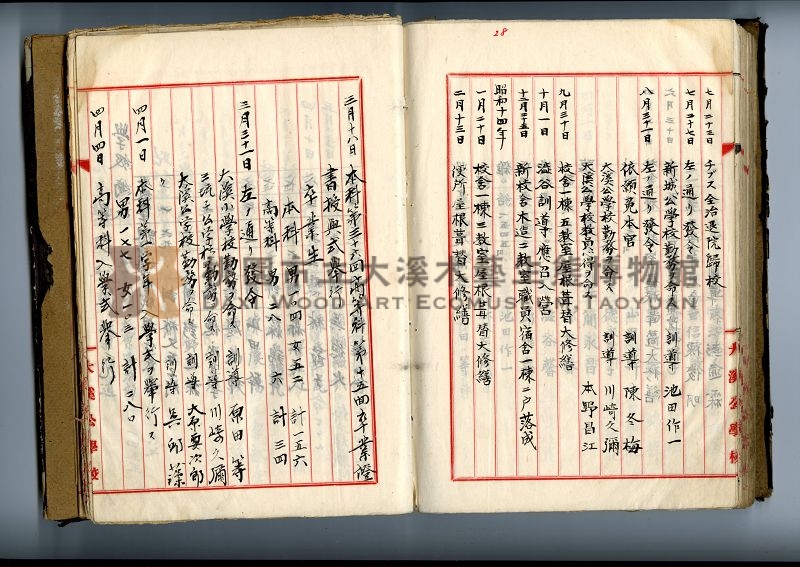 28
七月二十三日 チブス全治退院歸校
七月二十七日 左ノ通リ發令
新城公學校勤務ヲ命ス 訓導 池田作一
八月三十一日 左ノ通リ發令
依願免本官 訓導 陳冬梅
大溪公學校勤務ヲ命ス 訓導 川崎久彌
大溪公學校教員心得ヲ命ス 本野昌江
九月三十日 校舍一棟五教室屋根葺替大修繕
十月一日 澁谷訓導應召入營
十二月二十五日 新校舍木造二教室職員宿舍一棟二戶落成
昭和十四年
一月二十日 校舍一棟三教室屋根葺替大修繕
二月十三日 便所屋根葺替大修繕
大溪公學校
三月十八日 本科第三十六回高等科第十五回卒業證
書授與式舉行
卒業生
本科 男一〇四 女五二 計一五六
高等科 男二八 六 計三四
三月三十一日 左ノ通リ發令
大溪小學校勤務ヲ命ス 訓導 原田等
三坑子公學校勤務ヲ命ス 訓導 川崎久彌
大溪公學校勤務ヲ命ス 訓導
吳郁藻
四月一日 本科第一學年入學式ヲ舉行ス
男一七七 女一〇三 計二八〇
四月四日 高等科入學式舉行
大溪公學校
桃園市立大溪木藝生態博物館
DAXI WOOD ART ECOMUSEUM TAOYUAN